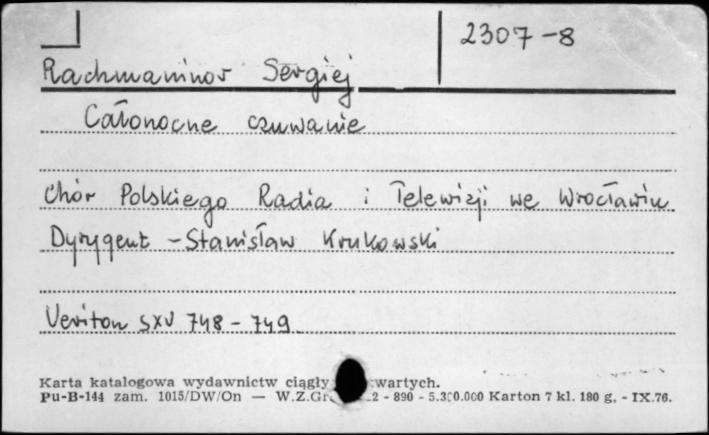 2307-8
Rachmaninov Sergiej
Całonocne czuwanie
Chór Polskiego Radia i Telewizji we Wrocławiu
Dyrygent - Stanisław Krukowski
Veriton SXV 748 - 749
Karta katalogowa wydawnictw ciągły wartych.
Pu-B-144 zam. 1015/DW/On — W.Z.Gr. 2 - 890 - 5.300.000 Karton 7 kl. 180 g. - IX.76.